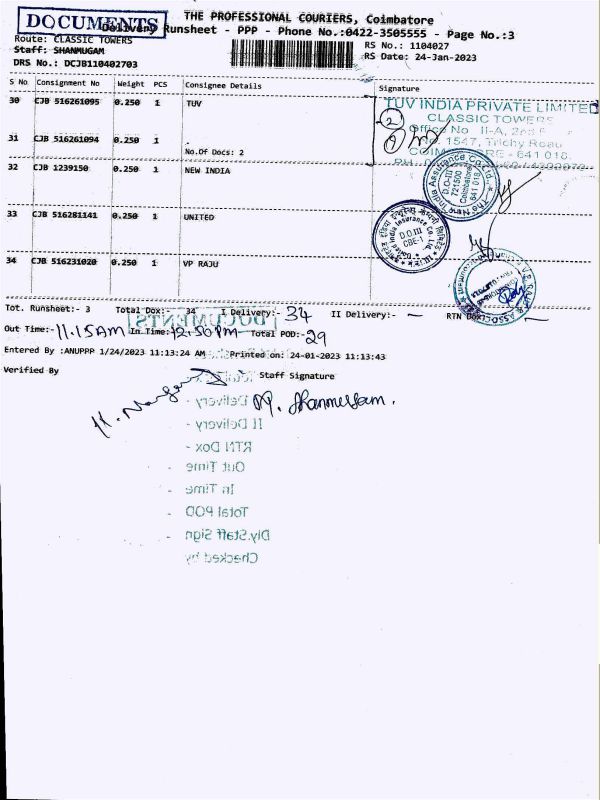 DOCUMENTS
THE PROFESSIONAL COURIERS, Coimbatore
Delivery Runsheet - PPP - Phone No.:0422-3505555 - Page No.:3
Route: CLASSIC TOWERS
RS No.: 1104027
Staff: SHANMUGAM
RS Date: 24-Jan-2023
DRS No.: DCJB110402703
S No Consignment No Weight PCS Consignee Details Signature
30 CJB 516261095 0.250 1 TUV
TUV INDIA PRIVATE LIMITED
CLASSIC TOWERS
Office No II-A,
No. 1547, Trichy Road
641 018.
31 CJB 516261094 0.250 1 .
No.Of Docs: 2
32 CJB 1239150 0.250 1 NEW INDIA
The New India Assurance Co. Ltd.
D.O-III
721500
Coimbatore
641 018
33 CJB 516281141 0.250 1 UNITED
D.O.III
CBE-1
34 CJB 516231020 0.250 1 VP RAJU
Tot. Runsheet:- 3 Total Dox:- 34 I Delivery:- 34 II Delivery:- — RTN Dox:- —
DOCUMENTS
Out Time:- 11.15AM In Time:- 12.50PM Total POD:- 29
Entered By :ANUPPP 1/24/2023 11:13:24 AM Printed on: 24-01-2023 11:13:43
Verified By Staff Signature
I Delivery -
II Delivery -
RTN Dox -
Out Time -
In Time -
Total POD -
Dly.Staff Sign -
Checked by